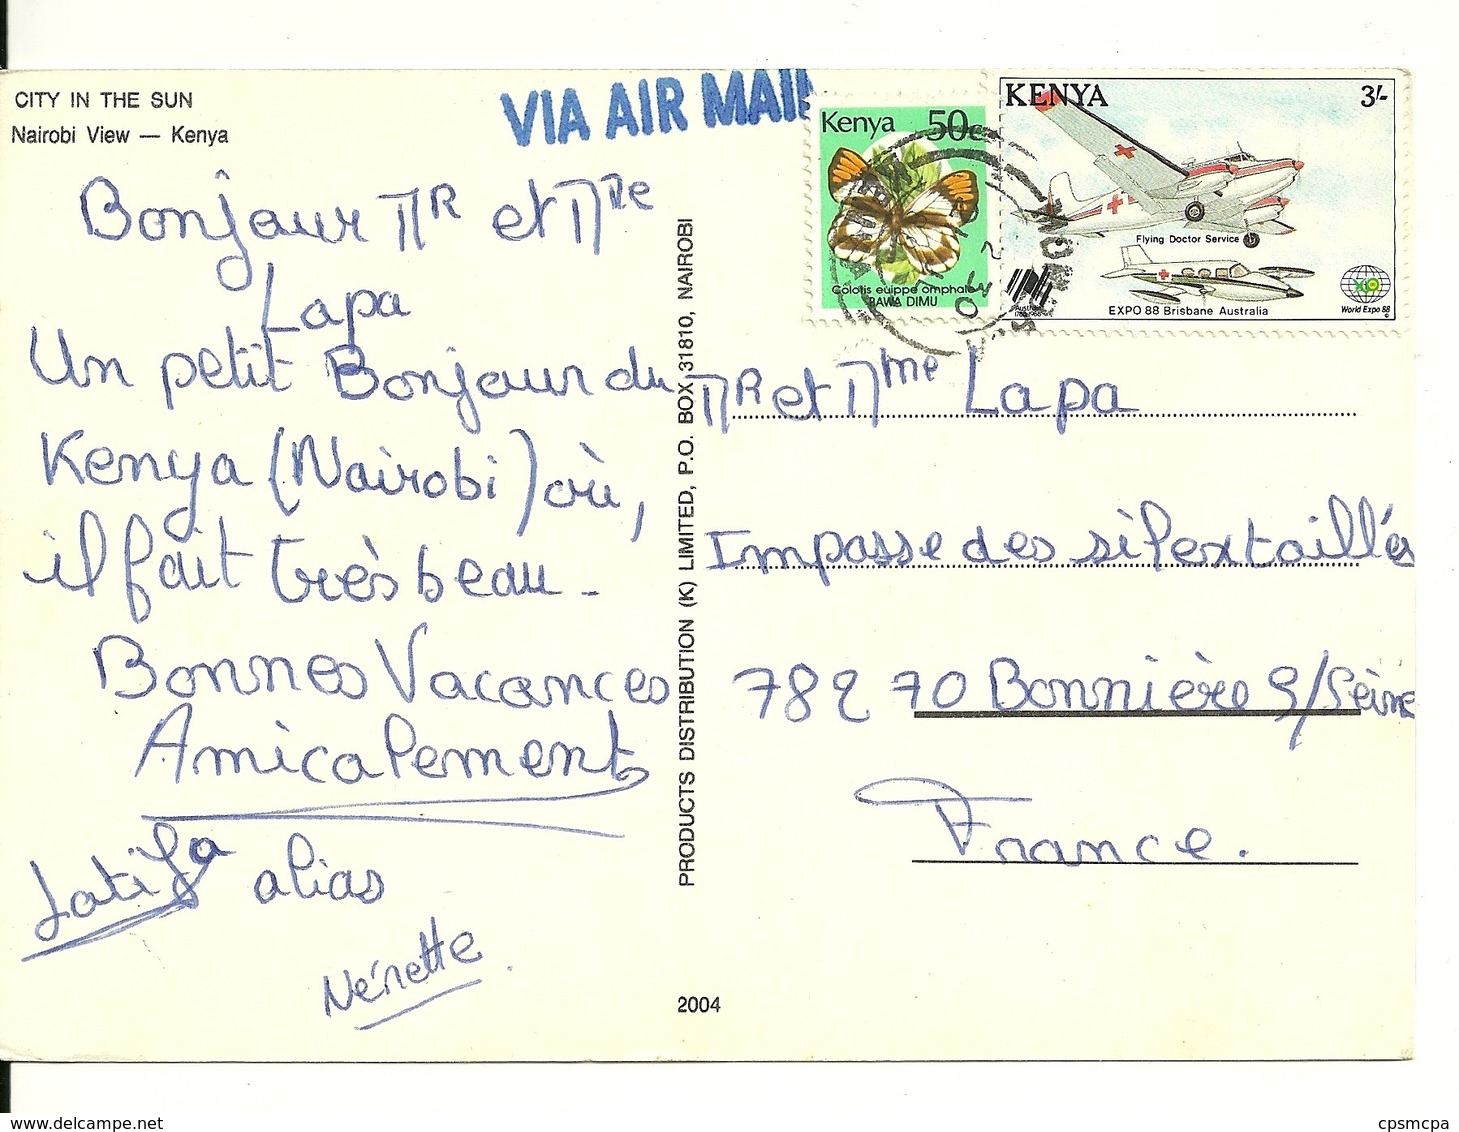 CITY IN THE SUN
Nairobi View — Kenya
VIA AIR MAIL
Kenya 50c
Colotis euippe omphale
BAWA DIMU
KENYA 3/-
Flying Doctor Service
EXPO 88 Brisbane Australia
World Expo 88
Bonjour Mr et Mme
Lapa
Un petit Bonjour du
Kenya (Nairobi) où,
il fait très beau.
Bonnes Vacances
Amicalement
Latifa alias
Nénette.
PRODUCTS DISTRIBUTION (K) LIMITED, P.O. BOX 31810, NAIROBI
2004
Mr et Mme Lapa
Impasse des silextaillés
78270 Bonnière S/Seine
France.
www.delcampe.net
cpsmcpa